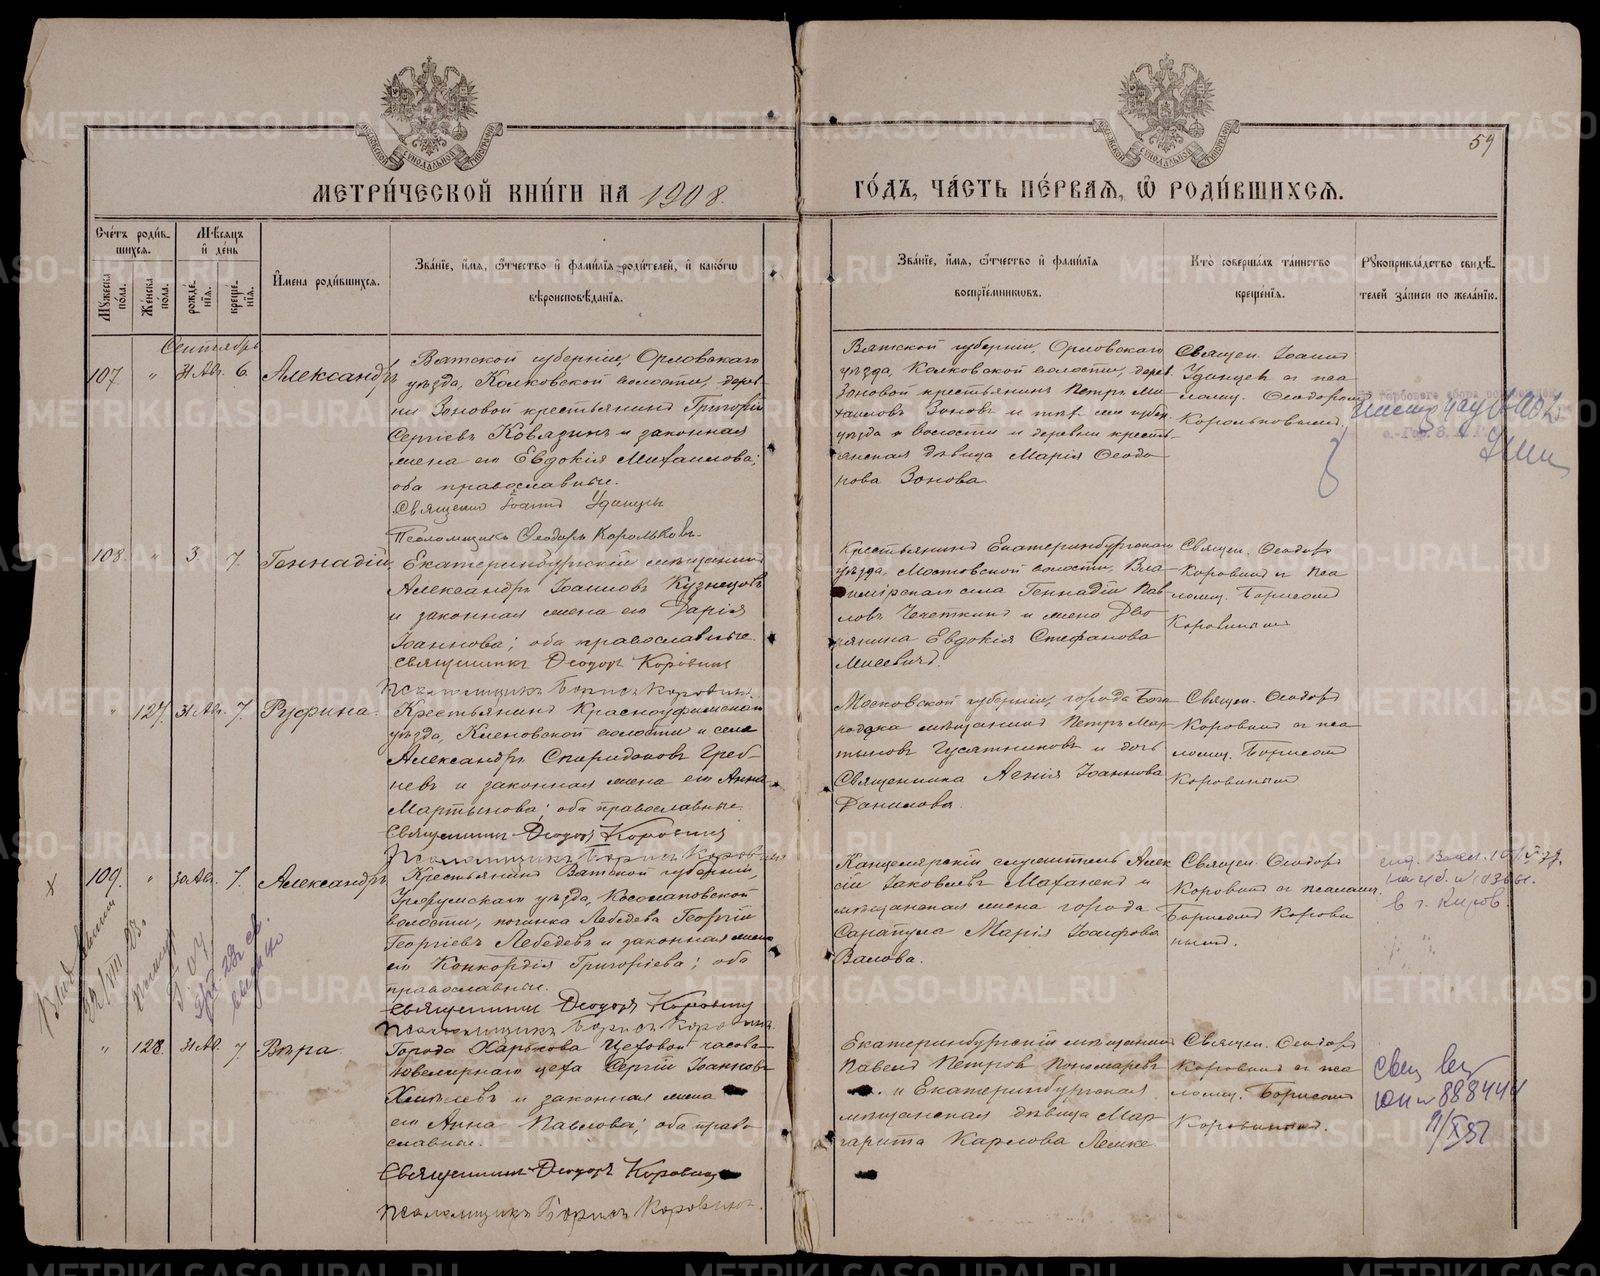 МЕТРИ́ЧЕСКОЙ КНИ́ГИ НА 1908.
ГО́ДЪ, ЧА́СТЬ ПЕ́РВАЯ, Ѡ РОДИ́ВШИХСЯ.
59
Сче́тъ роди́вшихся.
Му́жеска по́ла.
Же́нска по́ла.
Мѣ́сяцъ и҆ де́нь
рожде́нія.
креще́нія.
И҆мена роди́вшихся.
Зва́ніе, и҆́мя, ѻ҆́тчество и҆ фами́лія роди́телей, и҆ како́гѡ
вѣроисповѣ́данія.
Зва́ніе, и҆́мя, ѻ҆́тчество и҆ фами́лія
воспріе́мниковъ.
Кто̀ соверша́лъ та́инство
креще́нія.
Рꙋкоприкла́дство свидѣ́-
телей за́писи по жела́нію.
Сентябрь
107 " 31 Авг. 6. Александръ
Вятской губерніи, Орловскаго
уѣзда, Колковской волости, дерев
ни Зоновой крестьянинъ Григорій
Сергіевъ Ковязинъ и законная
жена его Евдокія Михаилова;
оба православные.
Священникъ Іоаннъ Удинцевъ
Псаломщикъ Ѳеодоръ Корольковъ.
Вятской губерніи, Орловскаго
уѣзда, Колковской волости, дерев.
Зоновой крестьянинъ Петръ Ми-
хаиловъ Зоновъ и той же губер.
уѣзда волости и деревни кресть-
янская дѣвица Марія Ѳеодо-
рова Зонова.
Священ. Іоаннъ
Удинцевъ съ пса-
ломщ. Ѳеодоромъ
Корольковымъ.
108. " 3. 7. Геннадій
Екатеринбургскій мѣщанинъ
Александръ Іоанновъ Кузнецовъ
и законная жена его Дарія
Іоаннова; оба православные.
Священникъ Ѳеодоръ Коровинъ
Псаломщикъ Борисъ Коровинъ.
Крестьянинъ Екатеринбургскаго
уѣзда, Мостовской волости, Вла-
димірскаго села Геннадій Пав-
ловъ Чечеткинъ и жена Дво-
рянина Евдокія Стефанова
Священ. Ѳеодоръ
Коровинъ съ пса-
ломщ. Борисомъ
Коровинымъ
" 127. 31 Авг. 7. Руфина.
Крестьянинъ Красноуфимскаго
уѣзда, Кленовской волости и села
Александръ Спиридоновъ Греб-
невъ и законная жена его Анна
Мартынова; оба православные.
Священникъ Ѳеодоръ Коровинъ
Псаломщикъ Борисъ Коровинъ
Московской губерніи, города Бого-
родска мѣщанинъ Петръ Мар-
тыновъ Гусятниковъ и дочь
Священника Іоаннова
Данилова.
Священ. Ѳеодоръ
Коровинъ съ пса-
ломщ. Борисомъ
Коровинымъ
109. " 30 Авг. 7. Александръ
Крестьянинъ Вятской губерніи,
Уржумскаго уѣзда, Косолаповской
волости, починка Лебедева Георгій
Георгіевъ Лебедевъ и законная жена
его Конкордія Григоріева; оба
православные.
Священникъ Ѳеодоръ Коровинъ
Псаломщикъ Борисъ Коровинъ.
Канцелярскій служитель Алек
сій Іаковлевъ Маханекъ и
мѣщанская жена города
Сарапула Марія Іосифова
Валова.
Священ. Ѳеодоръ
Коровинъ съ псаломщ.
Борисомъ Корови
нымъ.
в г. Киров
" 128. 31 Ав. 7 Вѣра.
Города Харькова Цеховой часова-
ювелирнаго цеха Сергій Іоанновъ
и законная жена
его Анна Павлова; оба право-
славные.
Священникъ Ѳеодоръ Коровинъ
Псаломщикъ Борисъ Коровинъ.
Екатеринбургскій мѣщанинъ
Павелъ Петровъ Пономаревъ
и Екатеринбургская
мѣщанская дѣвица Мар-
гарита Карлова Лемке.
Священ. Ѳеодоръ
Коровинъ съ пса-
ломщ. Борисомъ
Коровинымъ.
888444